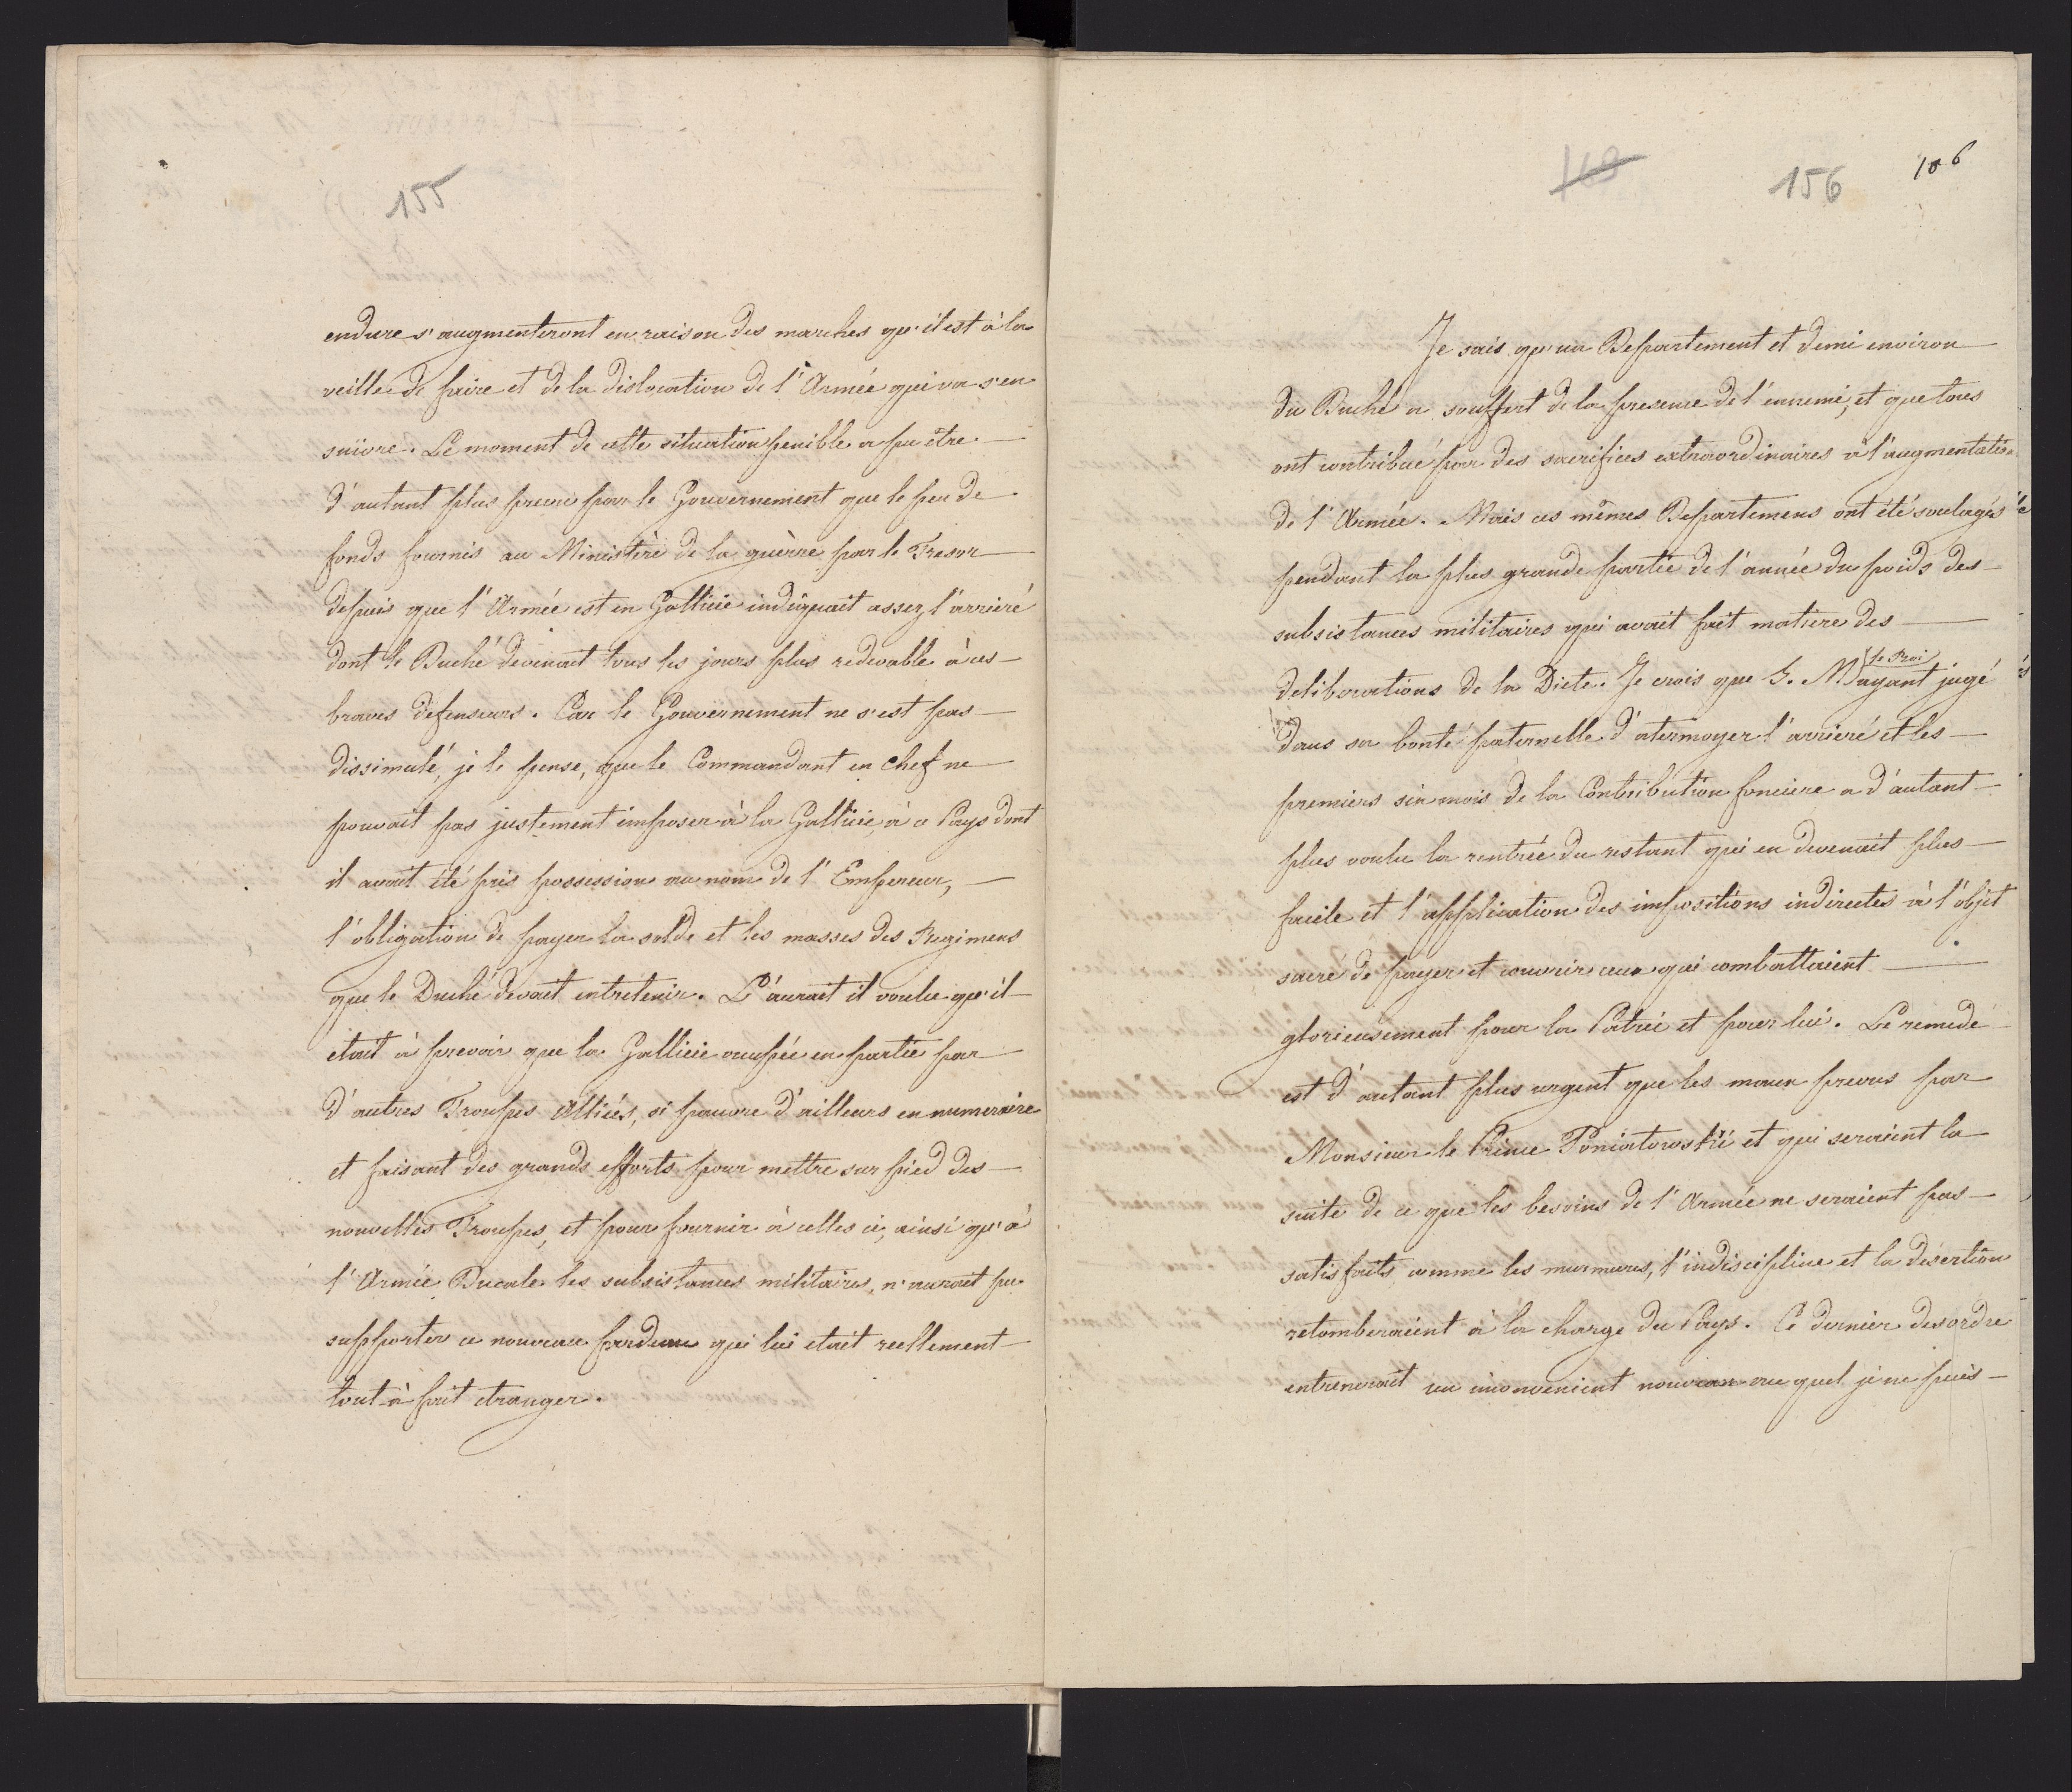 155
endure s'augmenteront en raison des marches qu'il est à la
veille de faire et de la dislocation de l'Armée qui va s'en
suivre. Le moment de cette situation penible a pu être
d'autant plus prevu par le Gouvernement que le peu de
fonds fournis au Ministère de la guèrre par le Tresor
depuis que l'Armée est en Gallicie indiquait assez l'arrieré
dont le Duché devenait tous les jours plus redevable à ces
braves defenseurs. Car le Gouvernement ne s'est pas
dissimulé, je le pense, que le Commandant en chef ne
pouvait pas justement imposer à la Gallicie, à ce Pays dont
il avait été pris possession au nom de l'Empereur,
l'obligation de payer la solde et les masses des Regimens
que le Duché devait entretenir. L'aurait il voulu qu'il
était à prevoir que la Gallicie occupée en partie par
d'autres Troupes Alliées, si pauvre d'ailleurs en numeraire
et faisant des grands efforts pour mettre sur pied des
nouvelles Troupes, et pour fournir à celles ci, ainsi qu'à
l'Armée Ducale les subsistances militaires, n'aurait pu
supporter ce nouveau fardeau qui lui etait reellement
tout-à fait etranger.
169
156
106
Je sais qu'un Departement et demi environ
du Duché a souffert de la presence de l'ennemi, et que tous
ont contribué par des sacrifices extraordinaires à l'augmentation
de l'Armée. Mais ces mêmes Departemens ont été soulagés
pendant la plus grande partie de l'année du poids des
subsistances militaires qui avait fait matiere des
deliberations de la Diete. Je crois que S. M. ayant jugé
le Roi
dans sa bonté paternelle d'atermoyer l'arrieré et les
premiers six mois de la Contribution fonciere a d'autant
plus voulu la rentrée du restant qui en devenait plus
facile et l'application des impositions indirectes à l'objet
sacre de payer et couvrir ceux qui combattaient
glorieusement pour la Patrie et pour lui. Le remede
est d'autant plus urgent que les maux prevus par
Monsieur le Prince Poniatowski et qui seraient la
suite de ce que les besoins de l'Armée ne seraient pas
satisfaits comme les murmures, l'indiscipline et la désertion
retomberaient à la charge du Pays. Ce dernier desordre
entrenerait un inconvenient nouveau au quel je ne puis